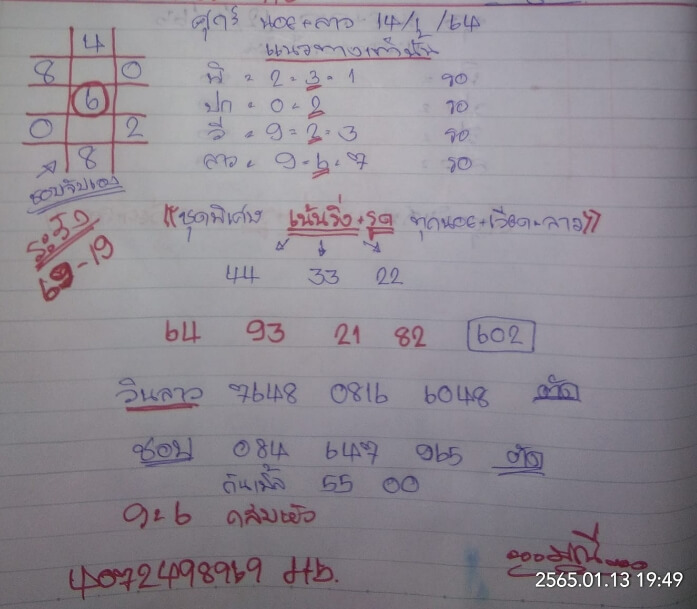 ศุกร์ นอย+ลาว 14/1/64
แนวทางเท่านั้น
4
8 0
6
0 2
8
ชอบจับเอง
ระวัง
69-19
พิ = 2 = 3 = 1 รอ
ปก = 0 = 2 รอ
วี = 9 = 2 = 3 รอ
ลาว = 9 = 6 = 7 รอ
((ชุดพิเศษ เน้นวิ่ง+รูด ทุกนอย+เวียด+ลาว))
44 33 22
64 93 21 82 602
วินลาว 7648 0816 6048 ตัด
ชอบ 084 647 965 ตัด
กันเบิ้ล 55 00
9=6
4072498969 Hb.
...มณี...
2565.01.13 19:49